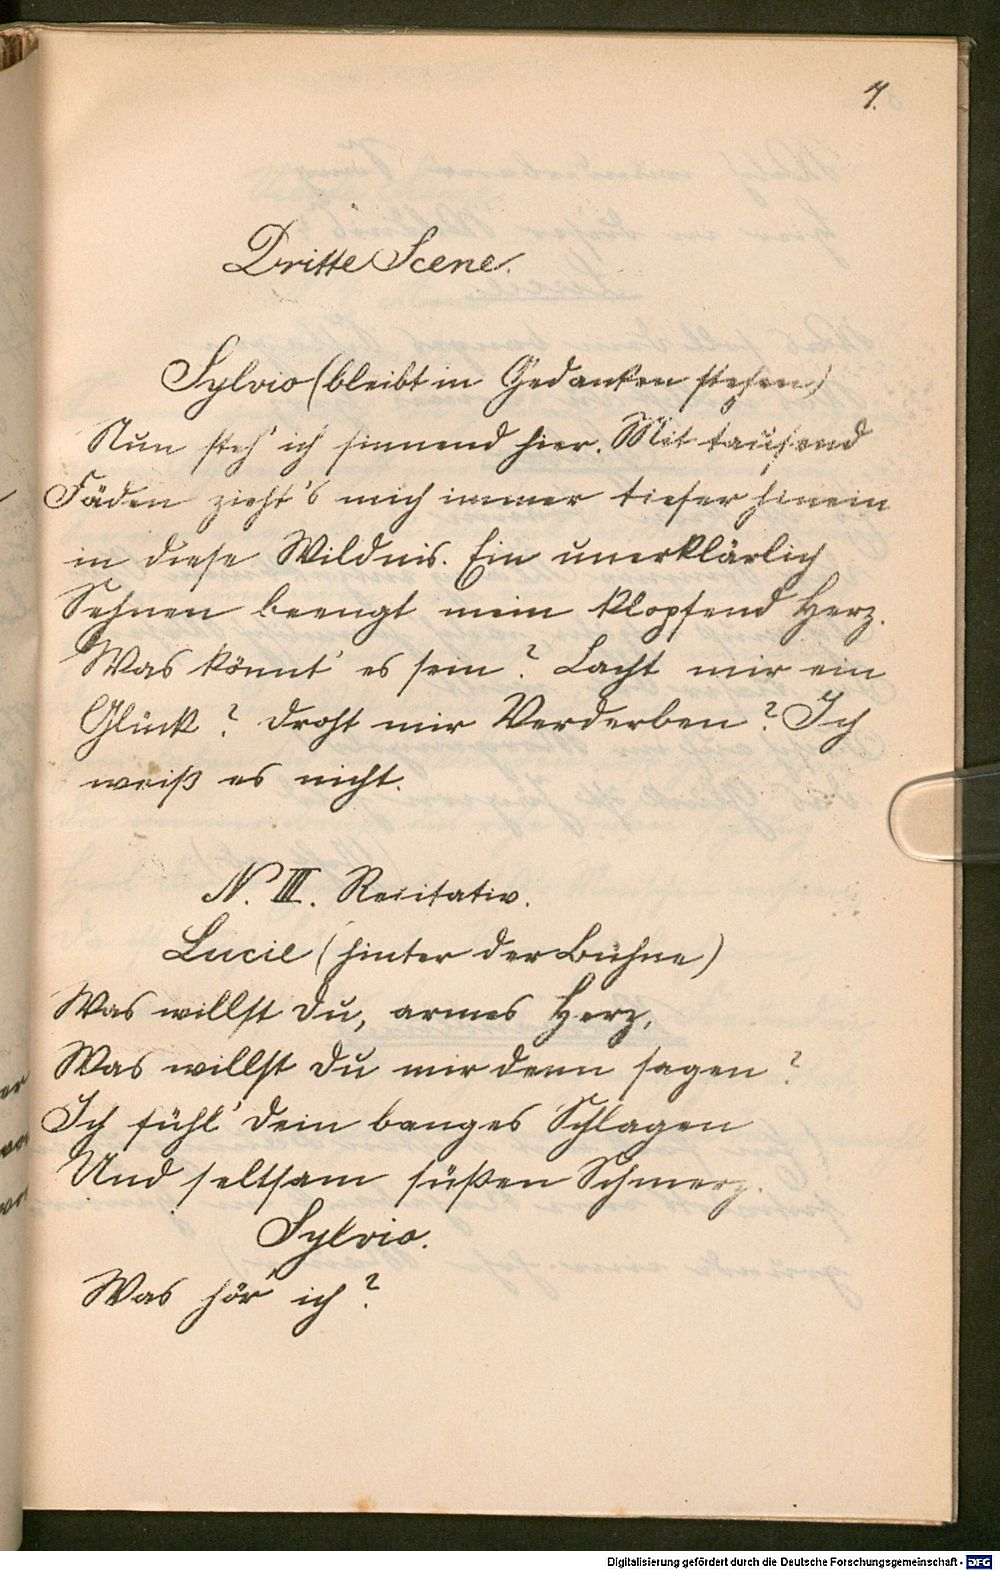 7.
Dritte Scene.
Sylvio (bleibt in Gedanken stehen)
Nun steh' ich sinnend hier. Mit tausend
Fäden zieht's mich immer tiefer hinein
in diese Wildnis. Ein unerklärlich
Sehnen beengt mein klopfend Herz.
Was könnt' es sein? Lacht mir ein
Glück? Droht mir Verderben? Ich
weiß es nicht.
N. III. Recitativ.
Lucil (hinter der Bühne)
Was willst du, armes Herz,
Was willst du mir denn sagen?
Ich fühl' dein banges Schlagen
Und seltsam süßen Schmerz.
Sylvio.
Was hör' ich?
Digitalisierung gefördert durch die Deutsche Forschungsgemeinschaft - DFG